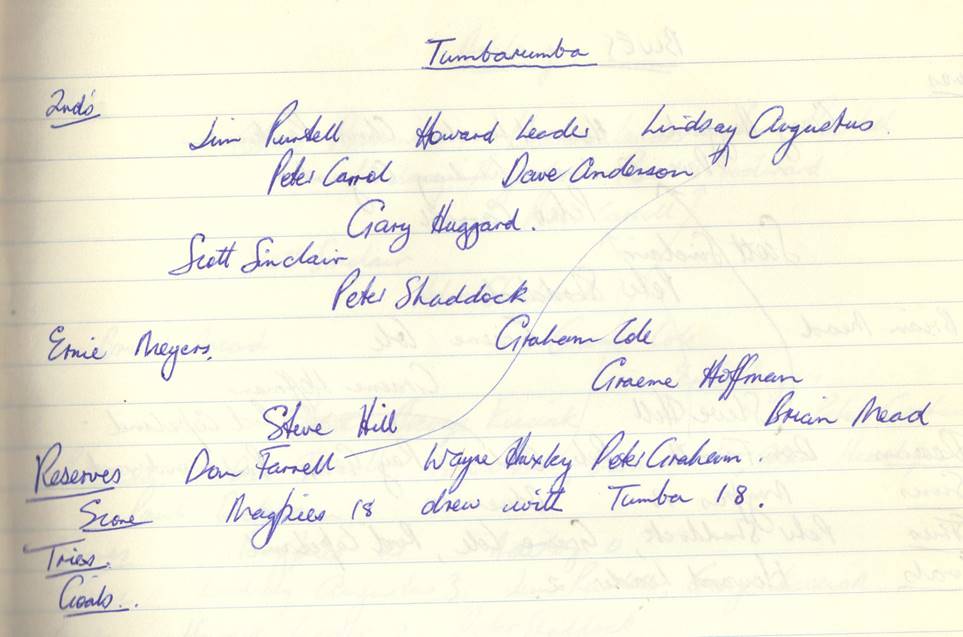 Tumbarumba
2nd's
Jim Purtell Howard Leader Lindsay Augustus.
Peter Carrol Dave Anderson
Gary Huggard.
Scott Sinclair
Peter Shaddock
Ernie Meyers. Graham Cole
Graeme Hoffman
Steve Hill Brian Mead
Reserves Don Farrell Wayne Huxley Peter Graham.
Score Magpies 18 drew with Tumba 18.
Tries.
Goals..